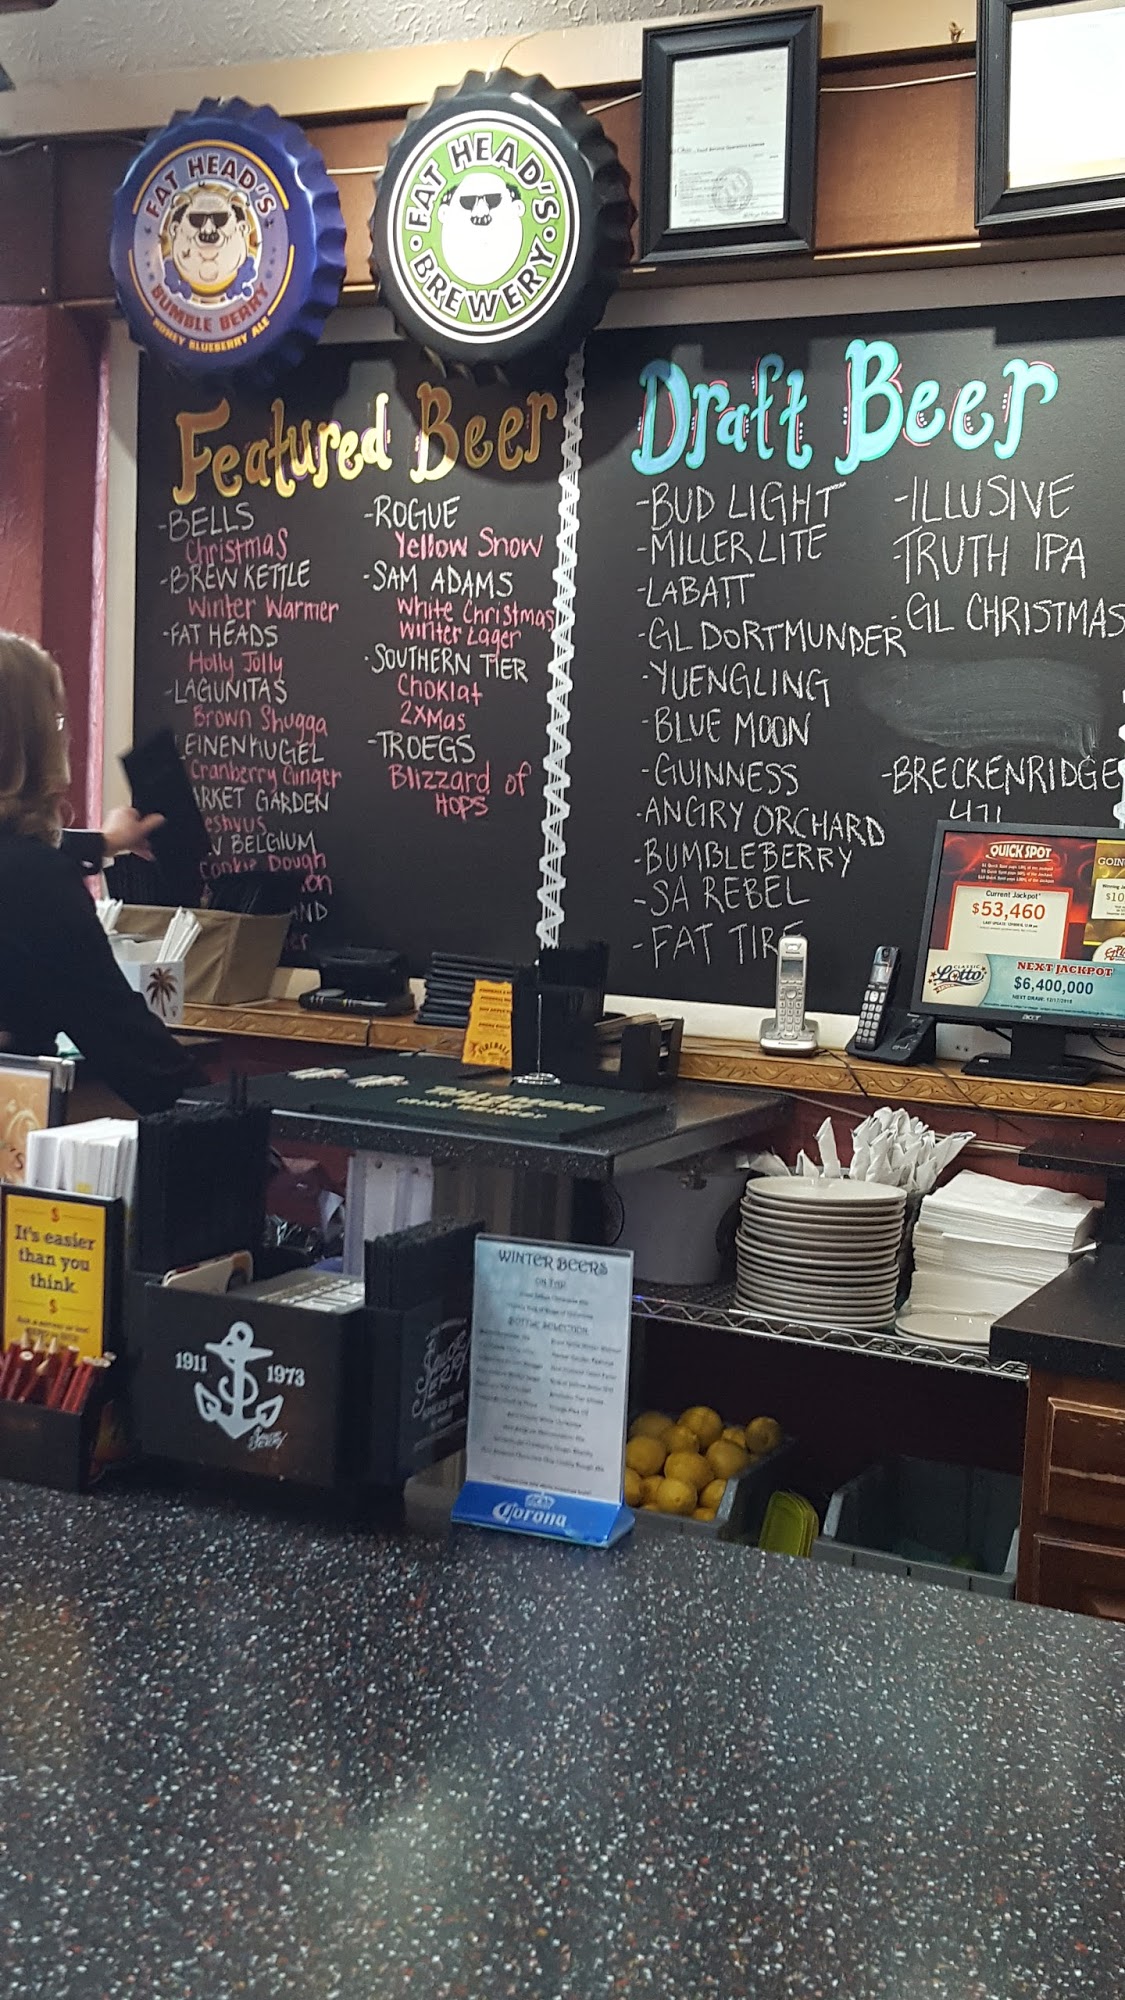 FAT HEAD'S
BUMBLE BERRY
HONEY BLUEBERRY ALE
FAT HEAD'S
BREWERY
Food Service Operation License
Featured Beer
-BELLS
Christmas
-BREW KETTLE
Winter Warmer
-FAT HEADS
Holly Jolly
-LAGUNITAS
Brown Shugga
EINENKUGEL
Cranberry Ginger
ARKET GARDEN
BELGIUM
Cookie Dough
-ROGUE
Yellow Snow
-SAM ADAMS
White Christmas
Winter Lager
-SOUTHERN TIER
Choklat
2XMas
-TROEGS
Blizzard of
HOPS
Draft Beer
-BUD LIGHT
-MILLER LITE
-LABATT
-GL DORTMUNDER
-YUENGLING
-BLUE MOON
-GUINNESS
-ANGRY ORCHARD
-BUMBLEBERRY
-SA REBEL
-FAT TIRE
-ILLUSIVE
-TRUTH IPA
-GL CHRISTMAS
-BRECKENRIDGE
471
QUICK SPOT
Current Jackpot*
$53,460
CLASSIC
Lotto
NEXT JACKPOT
$6,400,000
NEXT DRAW: 12/17/2018
acer
Panasonic
FIREBALL
TULLAMORE
IRISH WHISKEY
$
It's easier
than you
think.
$
1911
1973
SAILOR
JERRY
SAILOR
JERRY
SPICED RUM
WINTER BEERS
ON TAP
BOTTLE SELECTION
Corona